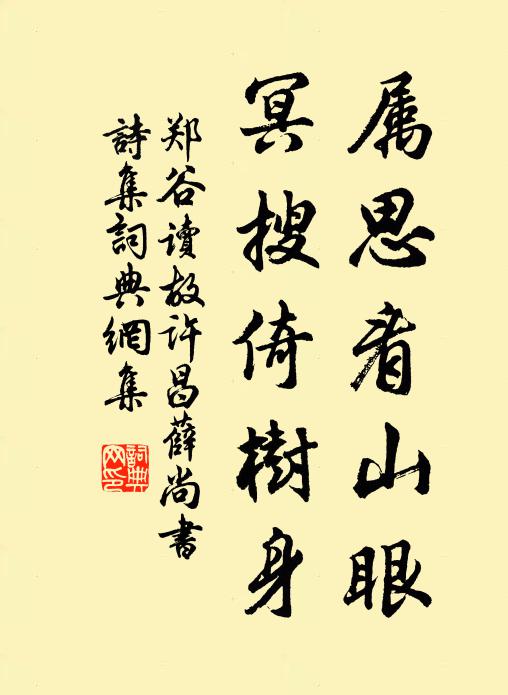 属思看山眼
冥搜倚樹身
郑谷讀故许昌薛尚書
詩集詞典網集
詞典
网印